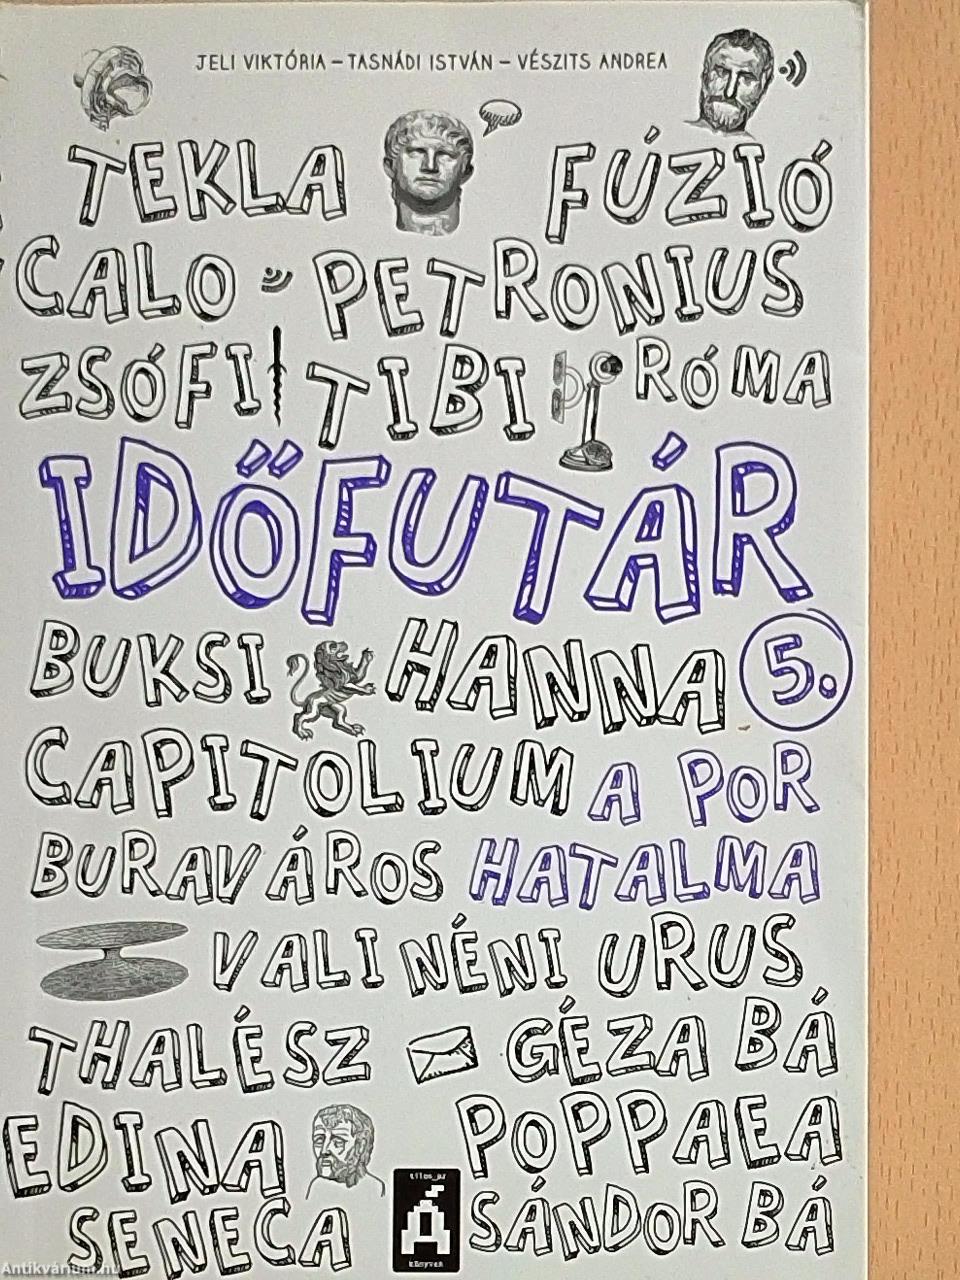 JELI VIKTÓRIA – TASNÁDI ISTVÁN – VÉSZITS ANDREA
TEKLA FÚZIÓ
CALO PETRONIUS
ZSÓFI TIBI RÓMA
IDŐFUTÁR
BUKSI HANNA 5.
CAPITOLIUM A POR
BURAVÁROS HATALMA
VALI NÉNI URUS
THALÉSZ GÉZA BÁ
EDINA POPPAEA
SENECA SÁNDOR BÁ
tilos_az
Á
könyvek
Antikvárium.hu